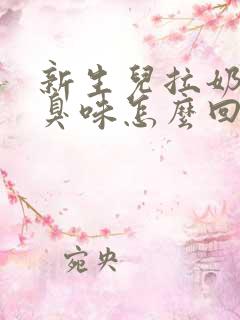 新生兒拉奶
臭味怎麼回
宛央